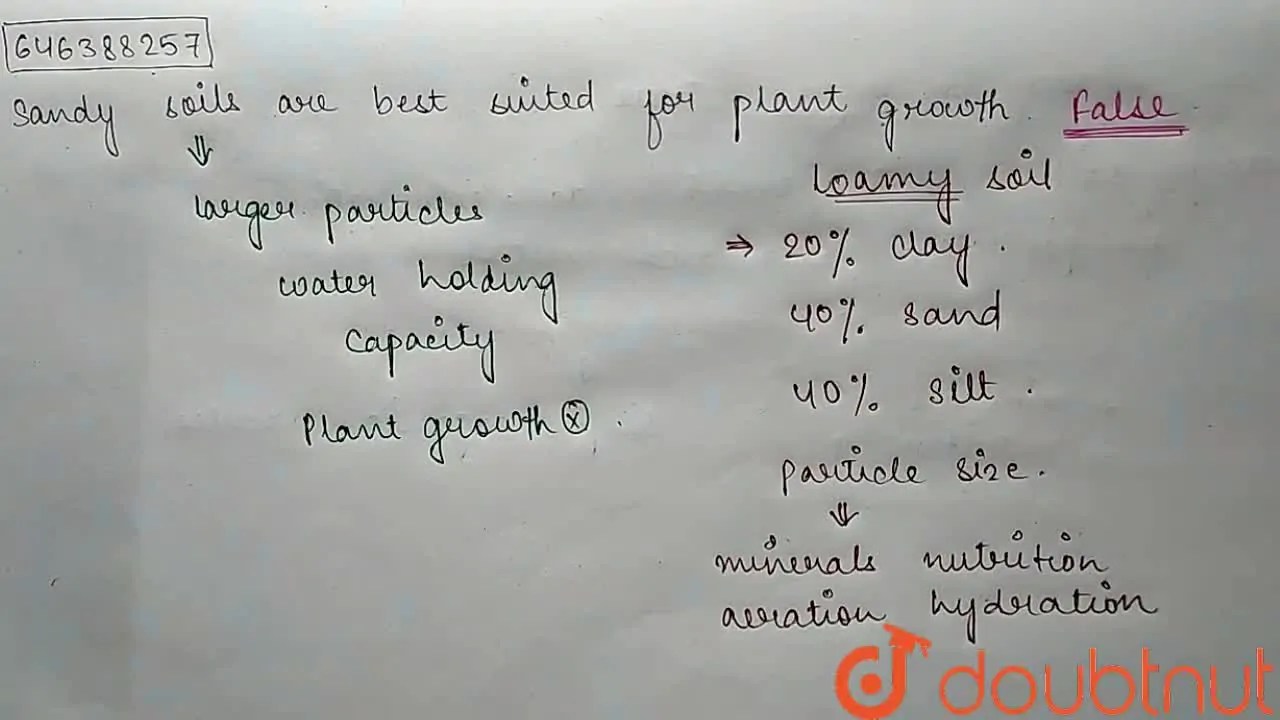 646388257
Sandy soils are best suited for plant growth. False.
⇓
larger particles
water holding
capacity
Plant growth ⓧ.
Loamy soil
⇒ 20% clay.
40% sand
40% silt.
particle size.
⇓
minerals nutrition
aeration hydration
doubtnut